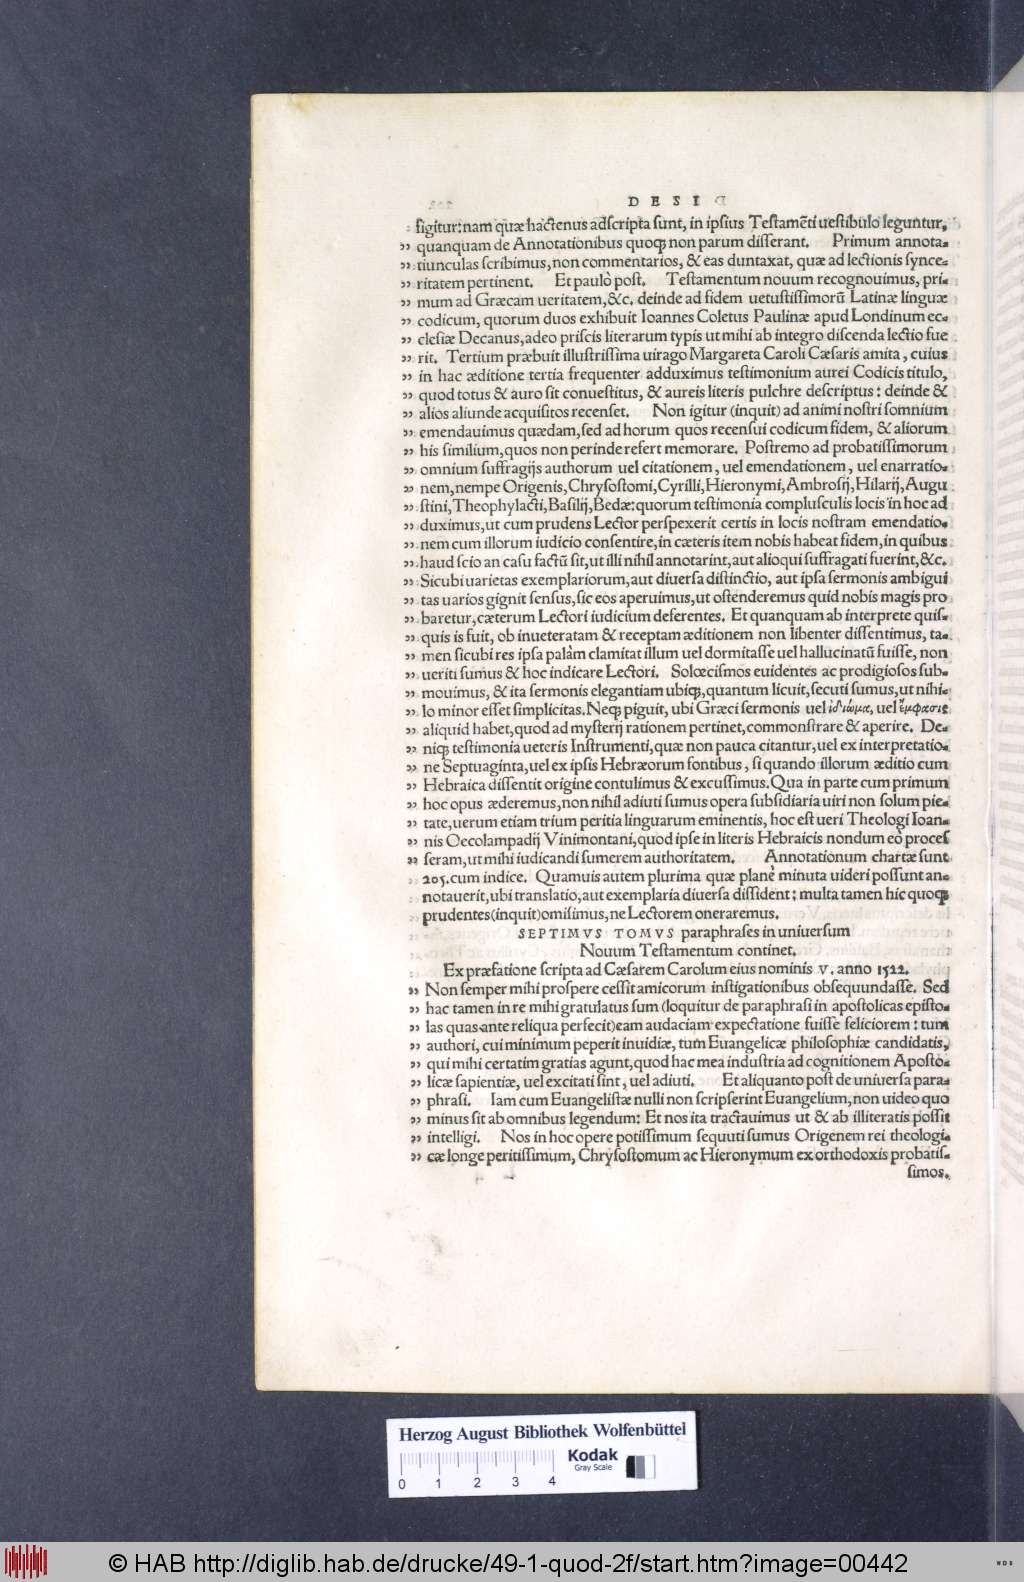 DESI
figitur: nam quæ hactenus adscripta sunt, in ipsius Testamẽti uestibulo leguntur,
„ quanquam de Annotationibus quoqꝫ non parum differant. Primum annota-
„ tiunculas scribimus, non commentarios, & eas duntaxat, quæ ad lectionis synce-
„ ritatem pertinent. Et paulò post. Testamentum nouum recognouimus, pri-
„ mum ad Græcam ueritatem, &c. deinde ad fidem uetustissimorũ Latinæ linguæ
„ codicum, quorum duos exhibuit Ioannes Coletus Paulinæ apud Londinum ec-
„ clesiæ Decanus, adeo priscis literarum typis ut mihi ab integro discenda lectio fue
„ rit. Tertium præbuit illustrissima uirago Margareta Caroli Cæsaris amita, cuius
„ in hac æditione tertia frequenter adduximus testimonium aurei Codicis titulo,
„ quod totus & auro sit conuestitus, & aureis literis pulchre descriptus: deinde &
„ alios aliunde acquisitos recenset. Non igitur (inquit) ad animi nostri somnium
„ emendauimus quædam, sed ad horum quos recensui codicum fidem, & aliorum
„ his similium, quos non perinde refert memorare. Postremo ad probatissimorum
„ omnium suffragijs authorum uel citationem, uel emendationem, uel enarratio-
„ nem, nempe Origenis, Chrysostomi, Cyrilli, Hieronymi, Ambrosij, Hilarij, Augu
„ stini, Theophylacti, Basilij, Bedæ: quorum testimonia complusculis locis in hoc ad
„ duximus, ut cum prudens Lector perspexerit certis in locis nostram emendatio-
„ nem cum illorum iudicio consentire, in cæteris item nobis habeat fidem, in quibus
„ haud scio an casu factũ sit, ut illi nihil annotarint, aut alioqui suffragati fuerint, &c.
„ Sicubi uarietas exemplariorum, aut diuersa distinctio, aut ipsa sermonis ambigui
„ tas uarios gignit sensus, sic eos aperuimus, ut ostenderemus quid nobis magis pro
„ baretur, cæterum Lectori iudicium deferentes. Et quanquam ab interprete quis-
„ quis is fuit, ob inueteratam & receptam æditionem non libenter dissentimus, ta-
„ men sicubi res ipsa palàm clamitat illum uel dormitasse uel hallucinatũ fuisse, non
„ ueriti sumus & hoc indicare Lectori. Solœcismos euidentes ac prodigiosos sub-
„ mouimus, & ita sermonis elegantiam ubiqꝫ, quantum licuit, secuti sumus, ut nihi-
„ lo minor esset simplicitas. Neqꝫ piguit, ubi Græci sermonis uel ἰδιώμα, uel ἔμφασις
„ aliquid habet, quod ad mysterij rationem pertinet, commonstrare & aperire. De-
„ niqꝫ testimonia ueteris Instrumenti, quæ non pauca citantur, uel ex interpretatio-
„ ne Septuaginta, uel ex ipsis Hebræorum fontibus, si quando illorum æditio cum
„ Hebraica dissentit origine contulimus & excussimus. Qua in parte cum primum
„ hoc opus æderemus, non nihil adiuti sumus opera subsidiaria uiri non solum pie-
„ tate, uerum etiam trium peritia linguarum eminentis, hoc est ueri Theologi Ioan-
„ nis Oecolampadij Vinimontani, quòd ipse in literis Hebraicis nondum eò proces
„ seram, ut mihi iudicandi sumerem authoritatem. Annotationum chartæ sunt
205. cum indice. Quamuis autem plurima quæ planè minuta uideri possunt an-
notauerit, ubi translatio, aut exemplaria diuersa dissident: multa tamen hic quoqꝫ
prudentes (inquit) omisimus, ne Lectorem oneraremus.
SEPTIMVS TOMVS paraphrases in uniuersum
Nouum Testamentum continet.
Ex præfatione scripta ad Cæsarem Carolum eius nominis V. anno 1522.
„ Non semper mihi prospere cessit amicorum instigationibus obsequundasse. Sed
„ hac tamen in re mihi gratulatus sum (loquitur de paraphrasi in apostolicas episto-
„ las quas ante reliqua perfecit) eam audaciam expectatione fuisse feliciorem: tum
„ authori, cui minimum peperit inuidiæ, tum Euangelicæ philosophiæ candidatis,
„ qui mihi certatim gratias agunt, quod hac mea industria ad cognitionem Aposto-
„ licæ sapientiæ, uel excitati sint, uel adiuti. Et aliquanto post de uniuersa para-
„ phrasi. Iam cum Euangelistæ nulli non scripserint Euangelium, non uideo quo
„ minus sit ab omnibus legendum: Et nos ita tractauimus ut & ab illiteratis possit
„ intelligi. Nos in hoc opere potissimum sequuti sumus Origenem rei theologi-
„ cæ longe peritissimum, Chrysostomum ac Hieronymum ex orthodoxis probatis-
simos.
Herzog August Bibliothek Wolfenbüttel
Kodak
Gray Scale
0 1 2 3 4
© HAB http://diglib.hab.de/drucke/49-1-quod-2f/start.htm?image=00442